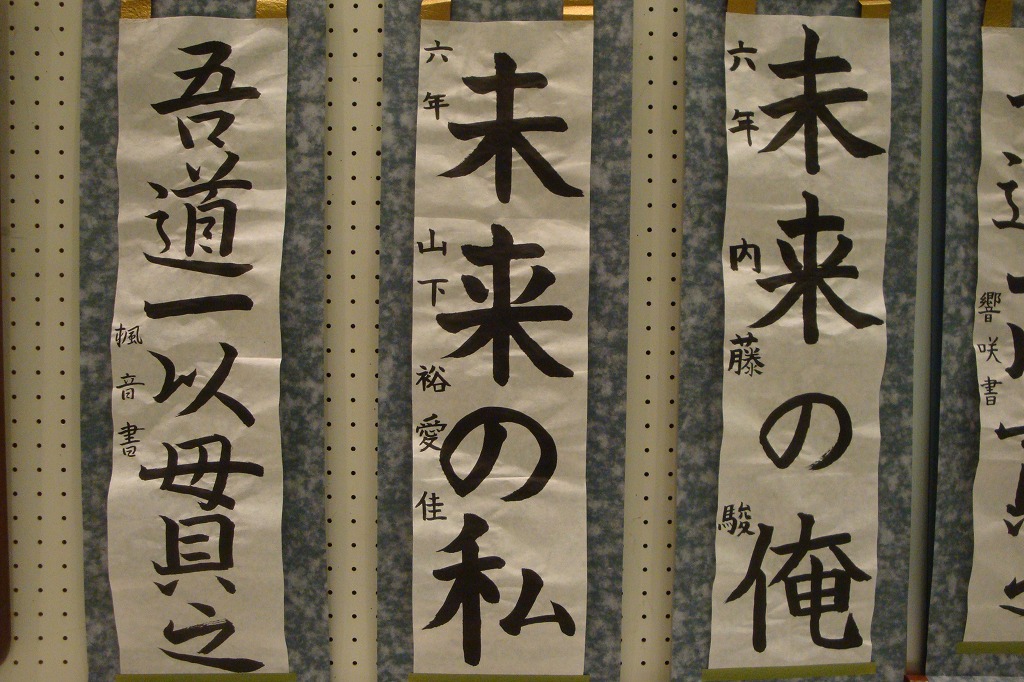 吾道一以貫之
楓音書
未来の私
六年 山下裕愛佳
未来の俺
六年 内藤駿
響咲書